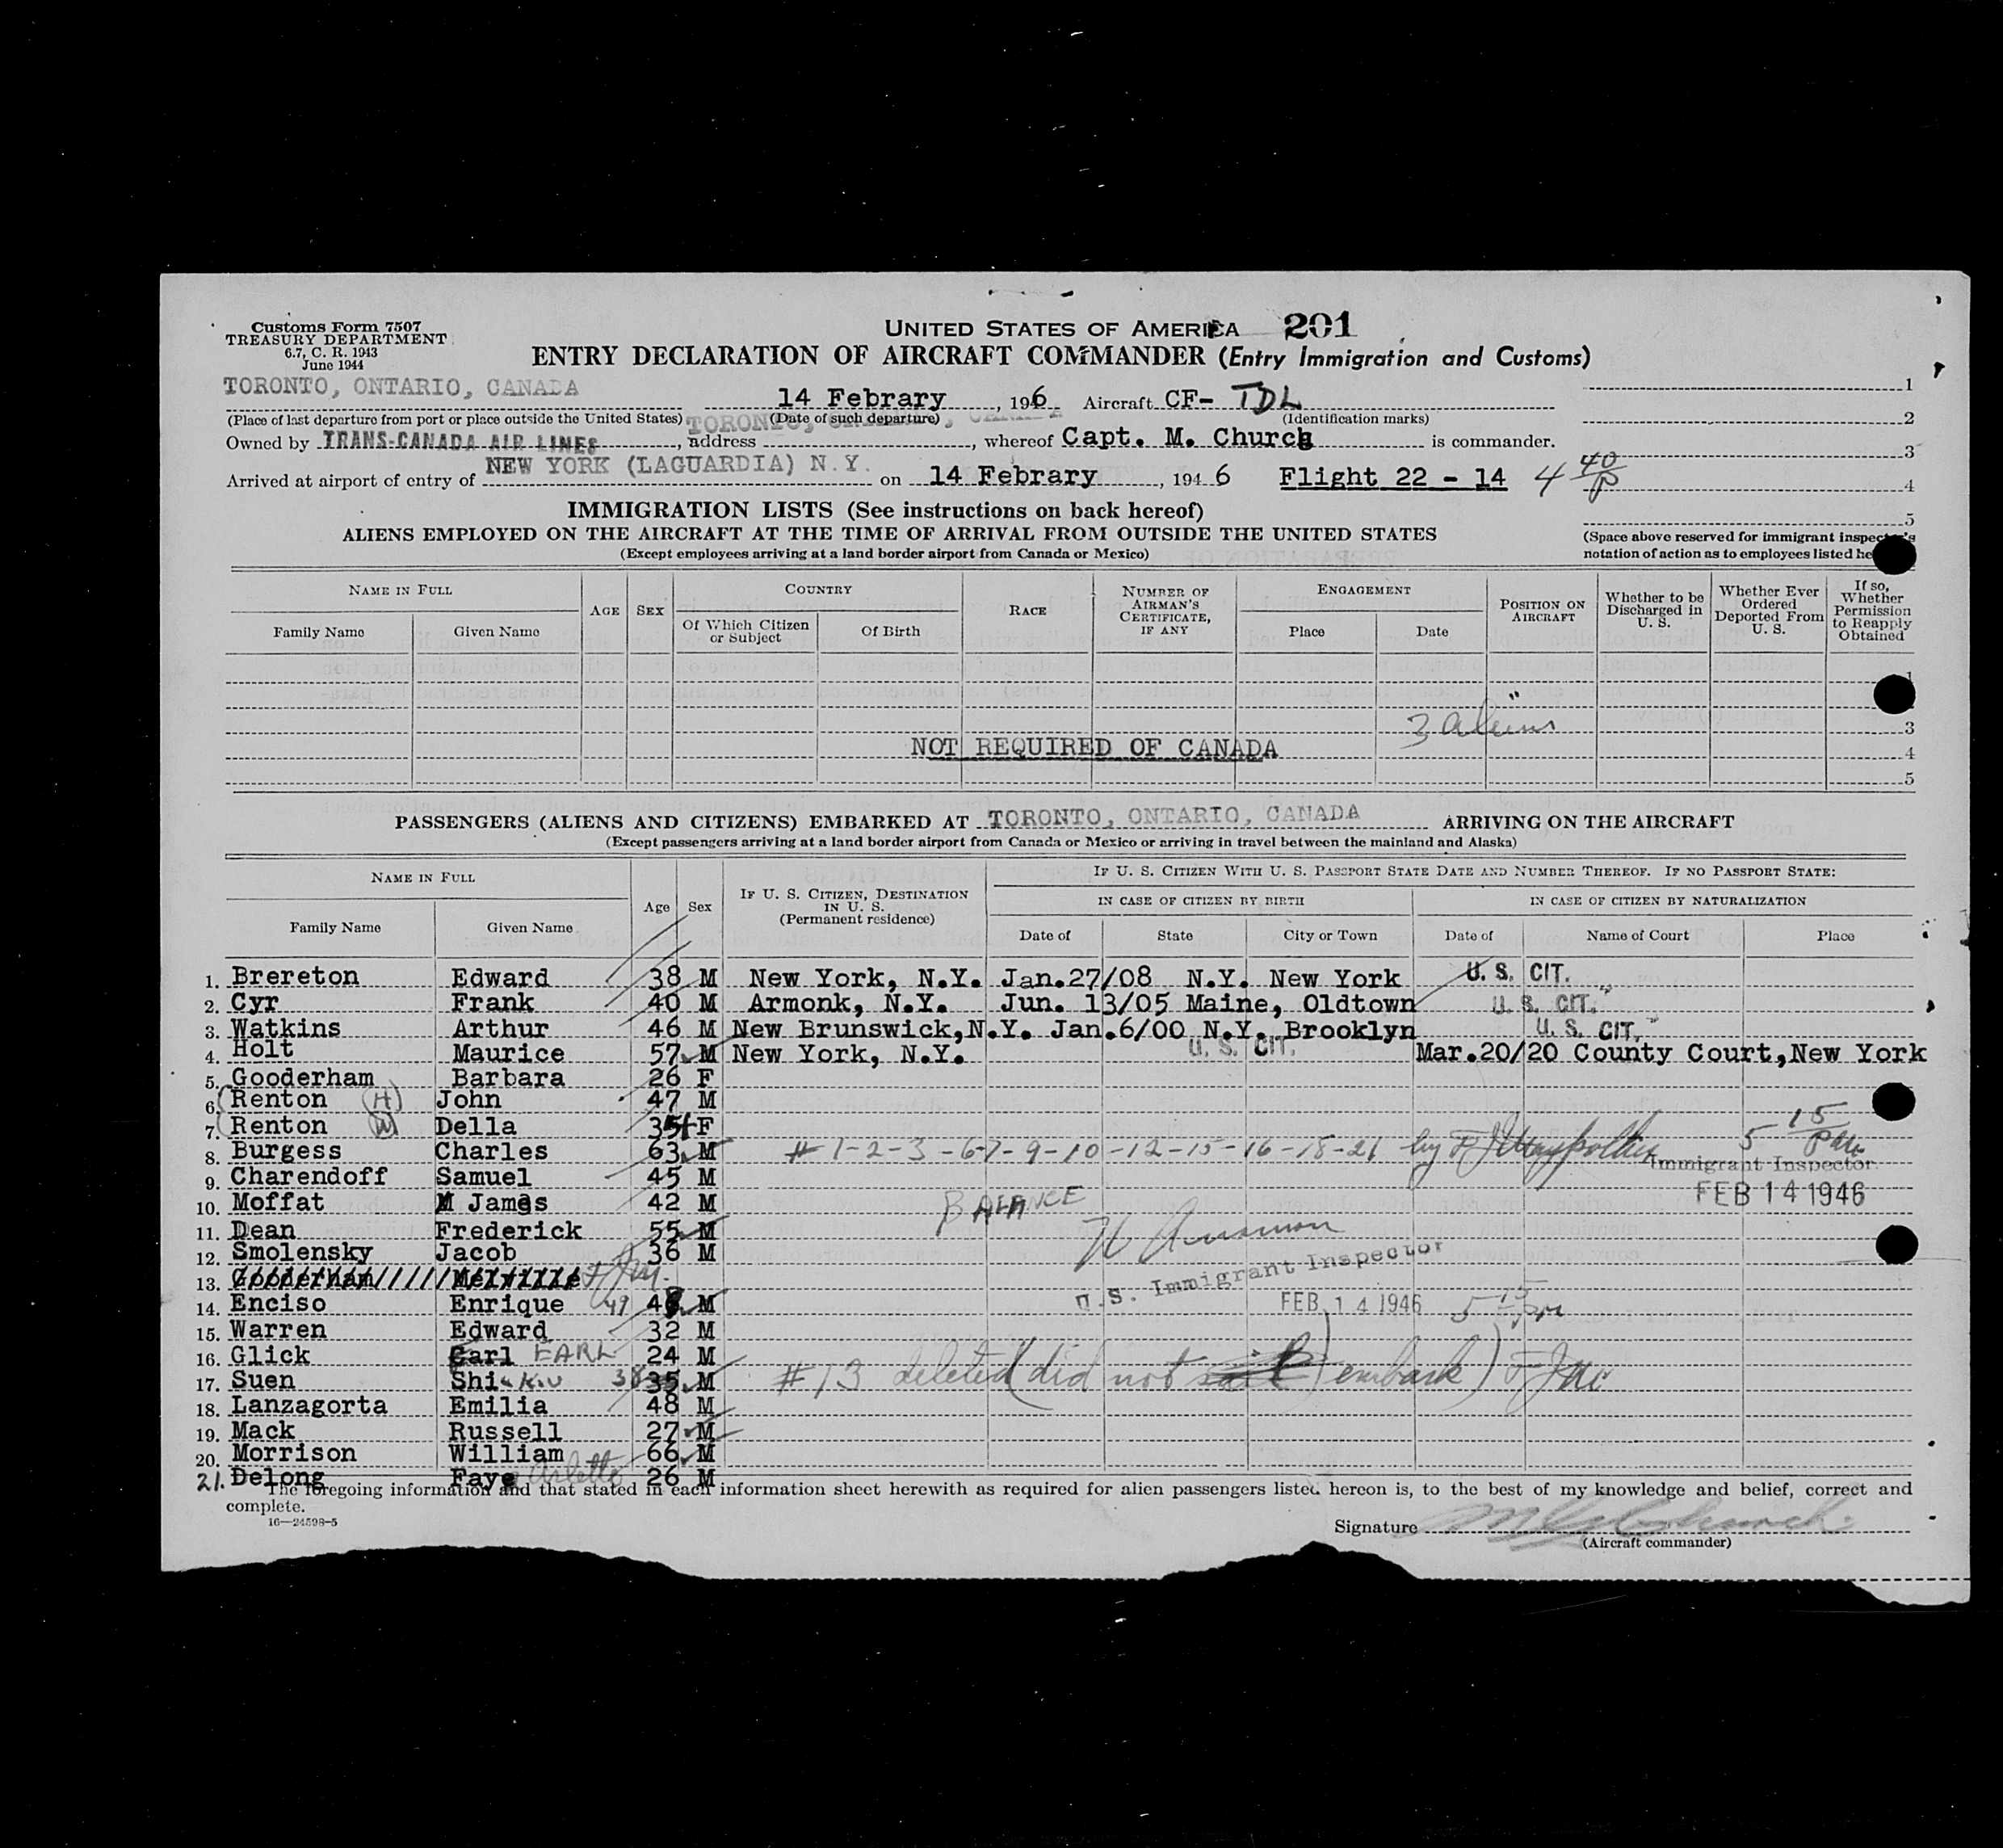 Customs Form 7507
TREASURY DEPARTMENT
6.7, C. R. 1943
June 1944
UNITED STATES OF AMERICA 201
ENTRY DECLARATION OF AIRCRAFT COMMANDER (Entry Immigration and Customs)
TORONTO, ONTARIO, CANADA 14 Febrary, 1946 Aircraft CF- TDL 1
(Place of last departure from port or place outside the United States) (Date of such departure) (Identification marks) 2
Owned by TRANS-CANADA AIR LINES, address TORONTO, ONTARIO, CANADA, whereof Capt. M. Church is commander. 3
Arrived at airport of entry of NEW YORK (LAGUARDIA) N.Y. on 14 Febrary, 1946 Flight 22 - 14 4 40/P 4
5
IMMIGRATION LISTS (See instructions on back hereof)
ALIENS EMPLOYED ON THE AIRCRAFT AT THE TIME OF ARRIVAL FROM OUTSIDE THE UNITED STATES
(Except employees arriving at a land border airport from Canada or Mexico)
(Space above reserved for immigrant inspector's
notation of action as to employees listed he
NAME IN FULL AGE SEX COUNTRY RACE NUMBER OF AIRMAN'S CERTIFICATE, IF ANY ENGAGEMENT POSITION ON AIRCRAFT Whether to be Discharged in U. S. Whether Ever Ordered Deported From U. S. If so, Whether Permission to Reapply Obtained
Family Name Given Name Of Which Citizen or Subject Of Birth Place Date
1
3 aliens 3
NOT REQUIRED OF CANADA 4
5
PASSENGERS (ALIENS AND CITIZENS) EMBARKED AT TORONTO, ONTARIO, CANADA ARRIVING ON THE AIRCRAFT
(Except passengers arriving at a land border airport from Canada or Mexico or arriving in travel between the mainland and Alaska)
NAME IN FULL Age Sex IF U. S. CITIZEN, DESTINATION IN U. S. (Permanent residence) IF U. S. CITIZEN WITH U. S. PASSPORT STATE DATE AND NUMBER THEREOF. IF NO PASSPORT STATE:
IN CASE OF CITIZEN BY BIRTH IN CASE OF CITIZEN BY NATURALIZATION
Family Name Given Name Date of State City or Town Date of Name of Court Place
1. Brereton Edward 38 M New York, N.Y. Jan.27/08 N.Y. New York U. S. CIT.
2. Cyr Frank 40 M Armonk, N.Y. Jun. 13/05 Maine, Oldtown U. S. CIT.
3. Watkins Arthur 46 M New Brunswick,N.Y. Jan.6/00 N.Y. Brooklyn U. S. CIT.
4. Holt Maurice 57 M New York, N.Y. U. S. CIT. Mar.20/20 County Court,New York
5. Gooderham Barbara 26 F
6. Renton (H) John 47 M
7. Renton (W) Della 35 F
8. Burgess Charles 63 M # 1-2-3-6-7-9-10-12-15-16-18-21 by 5 15/pm
Immigrant Inspector
9. Charendoff Samuel 45 M
10. Moffat M James 42 M BALANCE FEB 14 1946
11. Dean Frederick 55 M
12. Smolensky Jacob 36 M
U.S. Immigrant Inspector
13. Gooderham Melville
14. Enciso Enrique 49 48 M FEB 14 1946 5 15/pm
15. Warren Edward 32 M
16. Glick Carl EARL 24 M
17. Suen Shi-Kiu 38 35 M #13 deleted (did not sail) embark)
18. Lanzagorta Emilia 48 M
19. Mack Russell 27 M
20. Morrison William 66 M
21. Delong Faye Arlette 26 M
The foregoing information and that stated in each information sheet herewith as required for alien passengers listed hereon is, to the best of my knowledge and belief, correct and
complete.
16—24598-5
Signature M Church
(Aircraft commander)